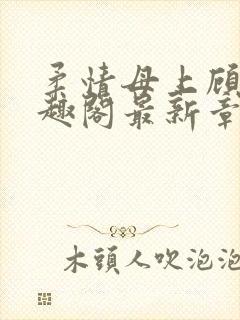 柔情母上顾
趣阁最新章
木頭人吹泡泡